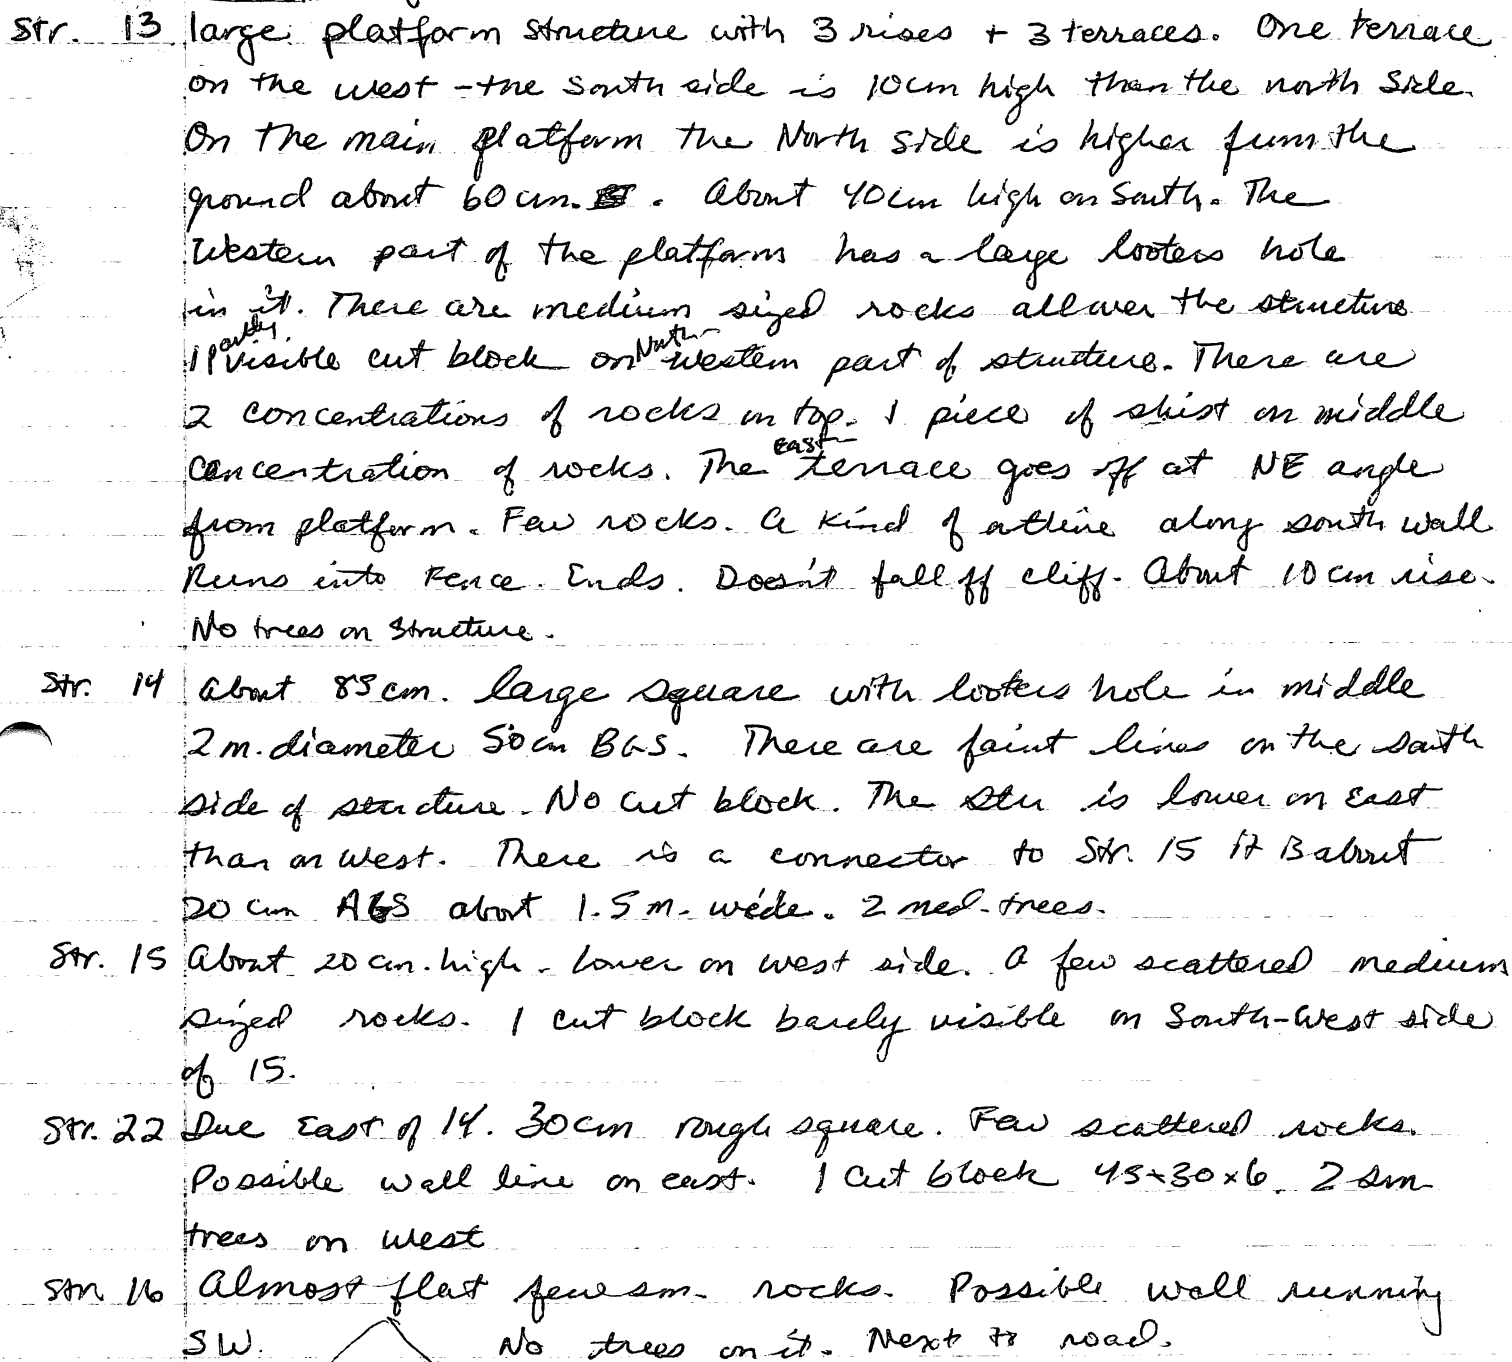 Str. 13 large platform structure with 3 rises + 3 terraces. One terrace
on the west - the south side is 10cm high than the north side.
On the main platform the North side is higher from the
ground about 60cm. . About 40cm high on South. The
Western part of the platform has a large looters hole
in it. There are medium sized rocks all over the structure
1 partly visible cut block on North-western part of structure. There are
2 concentrations of rocks on top. 1 piece of shist on middle
concentration of rocks. The East- terrace goes off at NE angle
from platform. Few rocks. A kind of outline along south wall
Runs into Fence. Ends. Doesn't fall off cliff. About 10cm rise.
No trees on Structure.
Str. 14 About 85cm. large square with looters hole in middle
2m. diameter 50cm BGS. There are faint lines on the south
side of structure. No cut block. The Str is lower on East
than on West. There is a connector to Str. 15 It is about
20cm AGS about 1.5m. wide. 2 med. trees.
Str. 15 About 20cm. high - lower on west side. A few scattered medium
sized rocks. 1 cut block barely visible on South-West side
of 15.
Str. 22 Due East of 14. 30cm rough square. Few scattered rocks.
Possible wall line on east. 1 Cut block 45x30x6. 2 sm
trees on west
Str. 16 Almost flat few sm. rocks. Possible wall running
SW. No trees on it. Next to road.